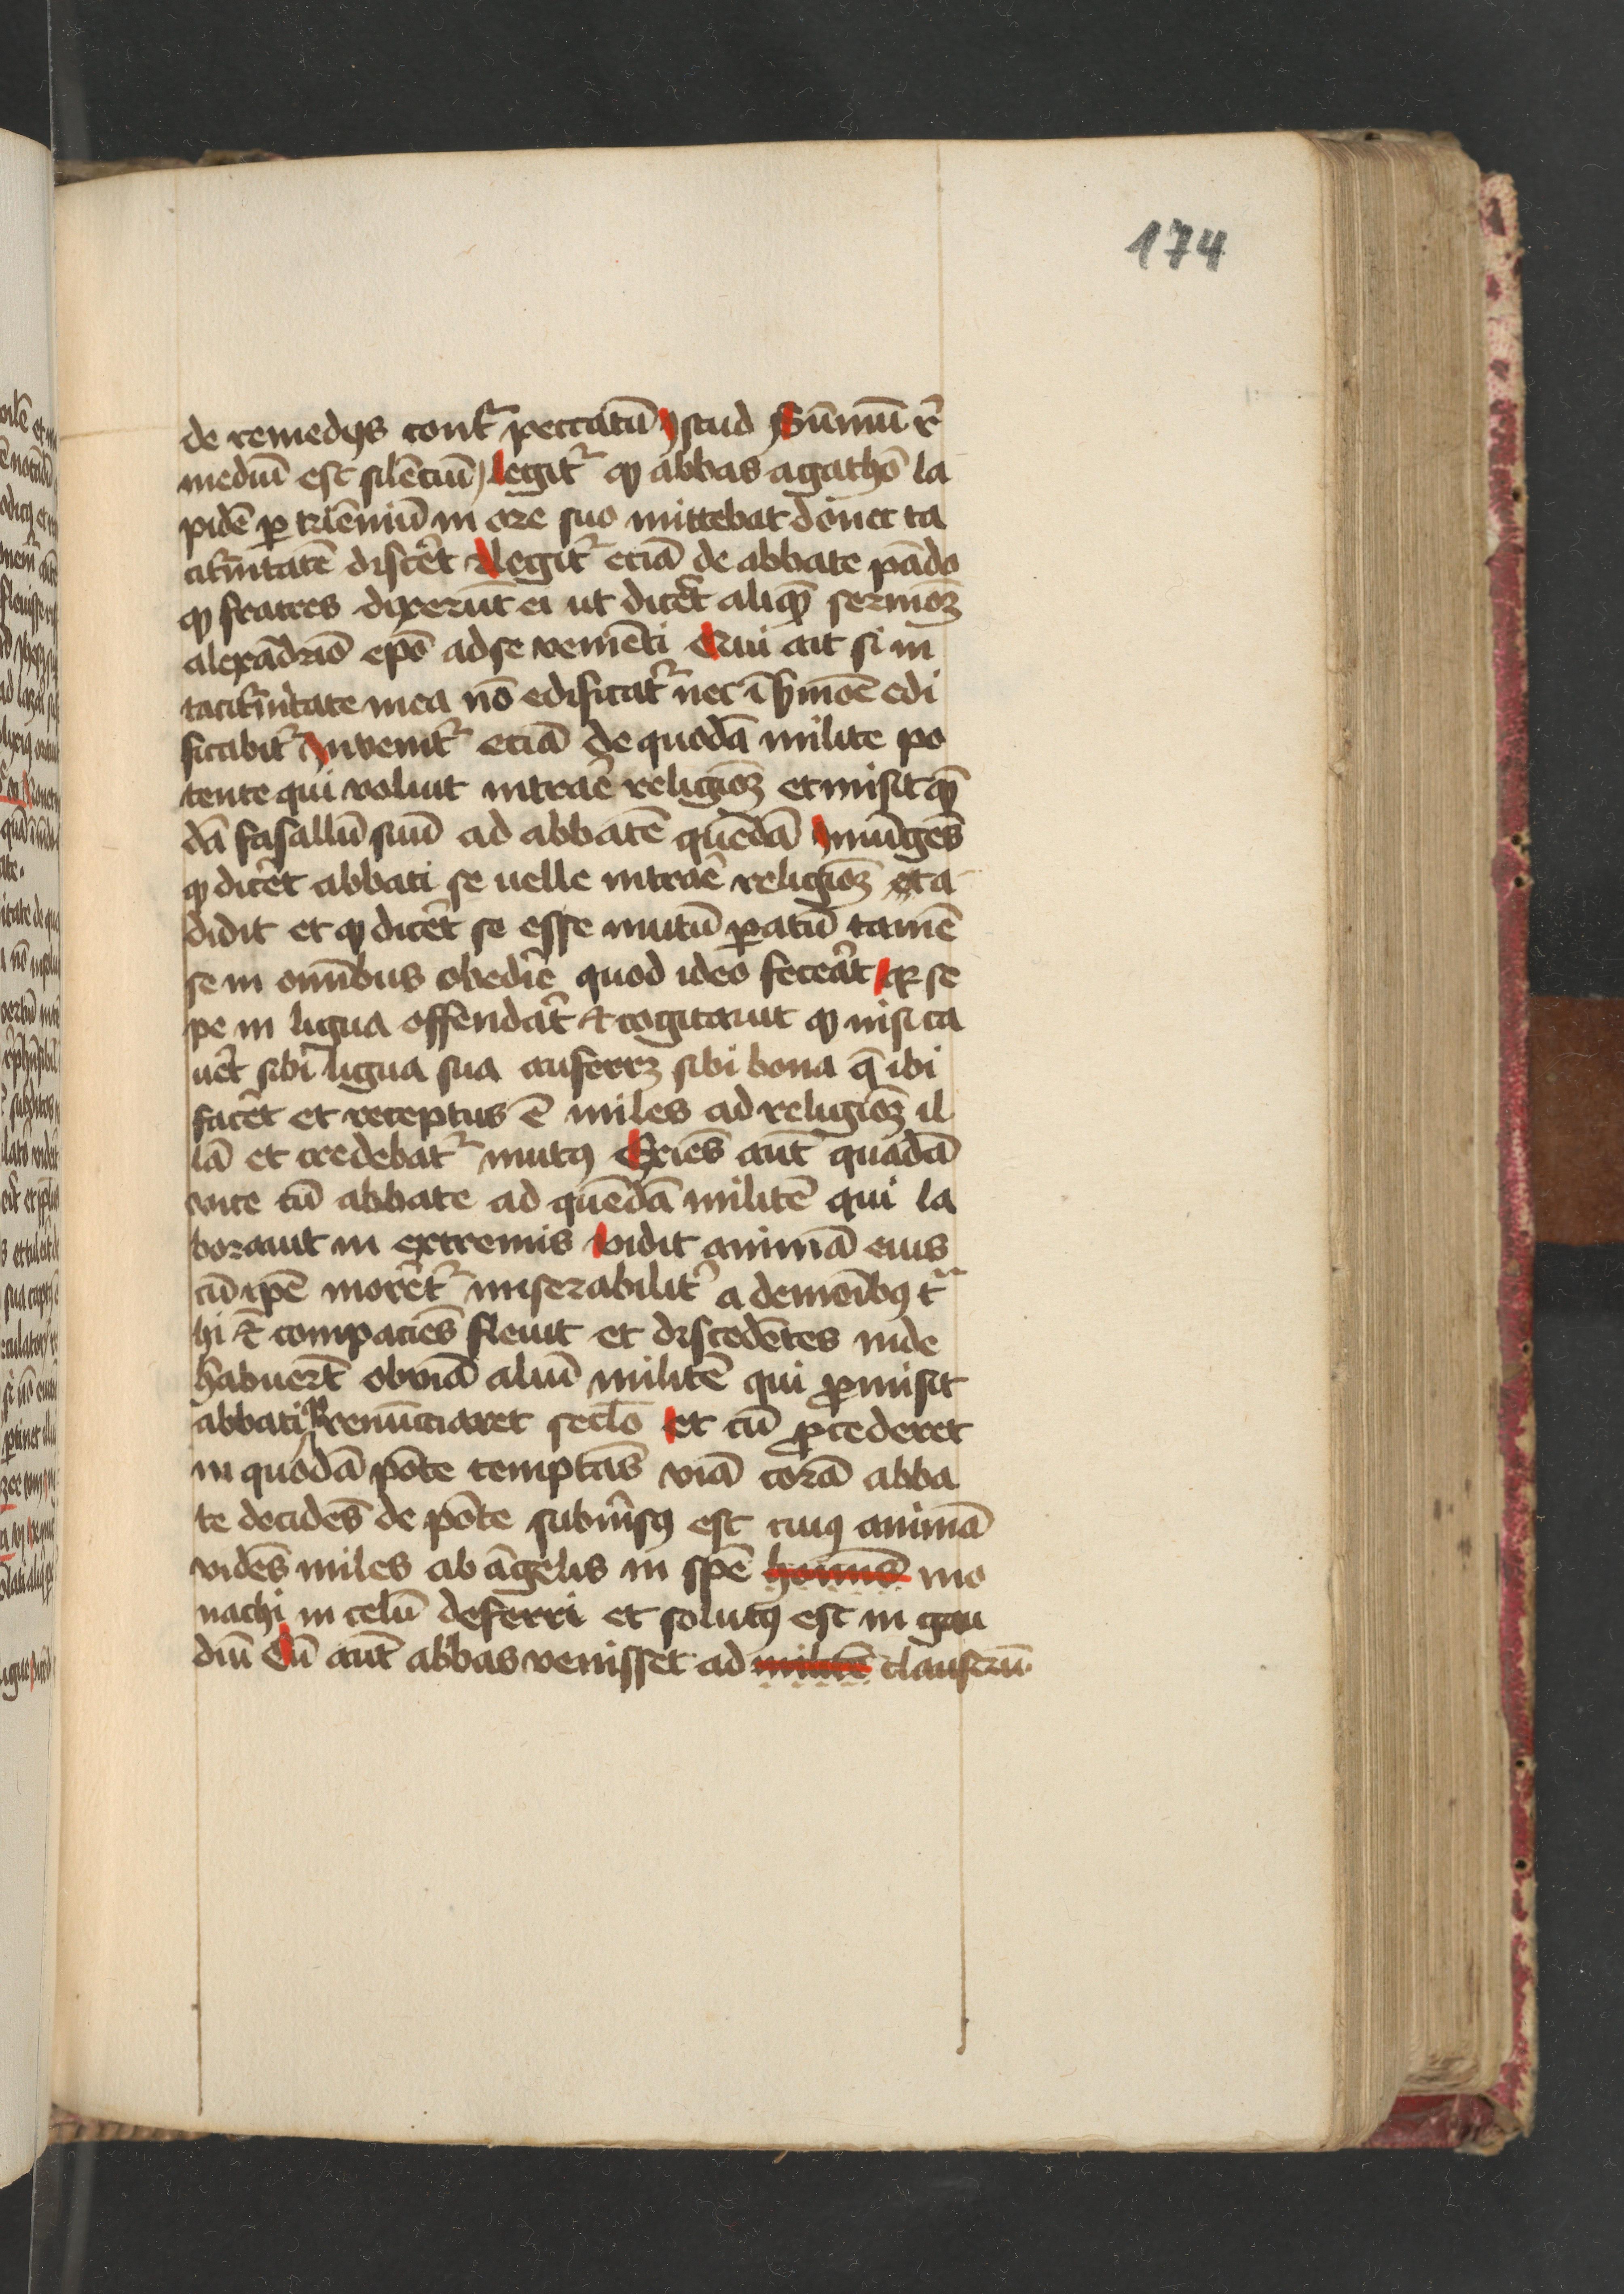 174
de remedijs contᷓ peccatū ystud Sūmū re
mediū est silēciū legitʳ qꝫ abbas agathō la
pidē ꝑ triēniū in ore suo mittebat donec ta
citʳnitatē discēt Legitʳ eciā de abbate pādo
qꝫ fratres dixerūt ei ut dicēt aliqē sermōꝫ
alexādrīo epō ad se venienti Qui ait si in
tacitʳnitate mea nō edificatʳ nec ī sʳmōe edi
ficabitʳ Invenitʳ eciā de quodā milite po
tente qui voluit intrare religiōꝫ et misit quē
dā fasallū suū ad abbatē quēdā iniūgēs
qꝫ dicēt abbati se uelle intrare religiōꝫ et a
didit et qꝫ dicēt se esse mutū ꝑatū tamē
se in omībus obedire quod ideo fecerāt qꝛ se
pe in ligua offendāt & cogitauit qꝫ nisi ca
uēt sibi ligua sua auferrꝫ sibi bona q̄ ibi
facēt et receptus ē miles ad religiōꝫ il
lā et credebatʳ mutꝰ Exiēs aūt quadā
vice cū abbate ad quēdā militē qui la
borauit in extremis vidit animā eius
cū ipē morētʳ miserabilitʳ a demoībꝰ tᷓ
hi & compaciēs fleuit et discedētes inde
habuerūt obviā aliū militē qui ꝓmisit
abbati qꝫ renūctiaret seclō et cū ꝓcederet
in quodā pōte temptās viā corā abba
te decidēs de pōte submʳsꝰ est cuiꝰ animā
vidēs miles ab āgelis in spē hominis mo
nachi in celū deferri et solutꝰ est in gau
diū Cū aūt abbas venisset ad militē claustrū